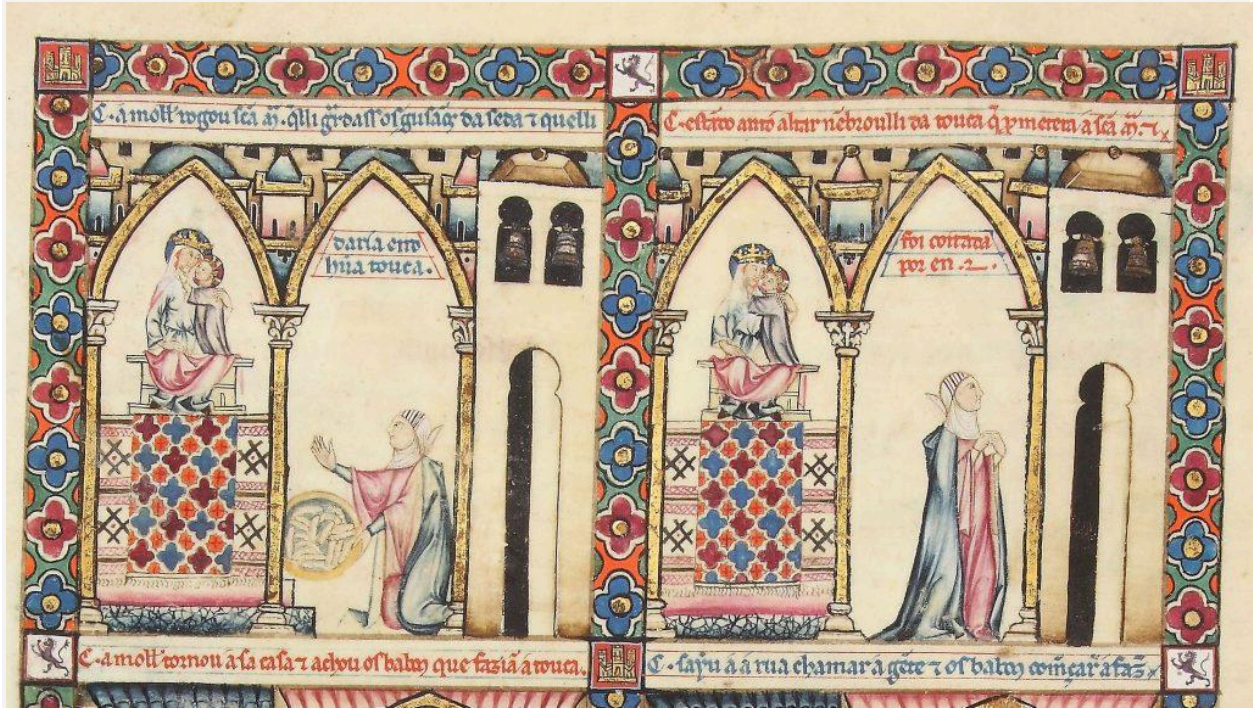 C · a moll' rogou sc̃a m̃. q̃lli gr̃dass' os gusãos da seda ⁊ quelli
daria end
hũa touca .
C · estãdo antó altar nẽbroulli da touca q̃ p̃metera a sc̃a m̃. ⁊
foi coitada
por en . ⁊ .
C · a moll' tornou a sa casa ⁊ achou os babõs que faziã a touca .
C · sayu á á rua chamar a gẽte ⁊ os babõs com̃çar̃ a faz̃